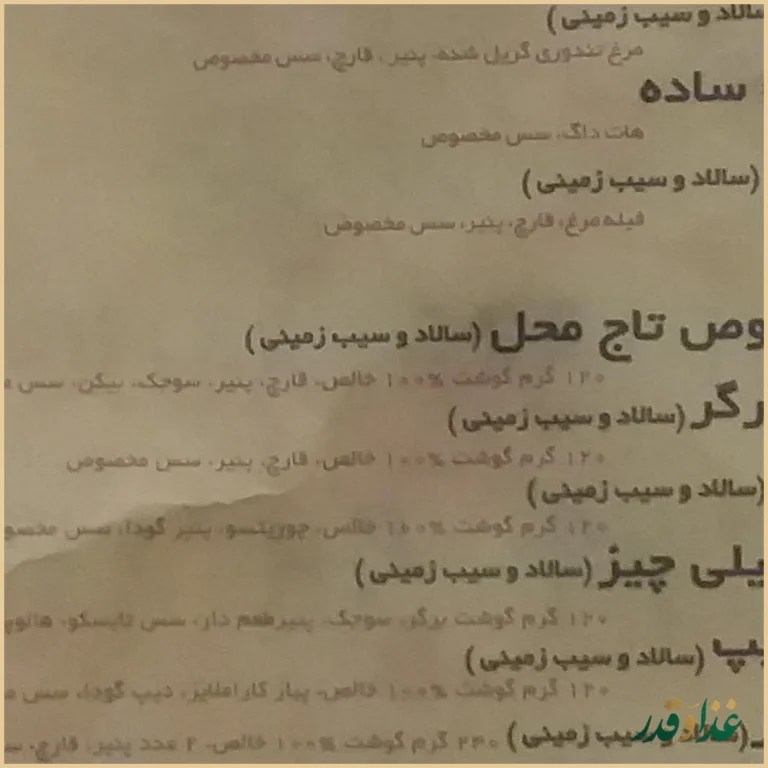 سالاد و سیب زمینی)
مرغ تندوری گریل شده، پنیر، قارچ، سس مخصوص
ساده
هات داگ، سس مخصوص
(سالاد و سیب زمینی)
فیله مرغ، قارچ، پنیر، سس مخصوص
تاج محل (سالاد و سیب زمینی)
۱۲۰ گرم گوشت ۱۰۰% خالص، قارچ، پنیر، سوجک، بیکن، سس
رگر (سالاد و سیب زمینی)
۱۲۰ گرم گوشت ۱۰۰% خالص، قارچ، پنیر، سس مخصوص
(سالاد و سیب زمینی)
۱۲۰ گرم گوشت ۱۰۰% خالص، چوریتسو، پنیر گودا، سس مخصو
یلی چیز (سالاد و سیب زمینی)
۱۲۰ گرم گوشت برگر، سوجک، پنیر طعم دار، سس تاباسکو، هالوپ
یپ (سالاد و سیب زمینی)
۱۲۰ گرم گوشت ۱۰۰% خالص، پیاز کاراملایز، دیپ گودا، سس
(سالاد و سیب زمینی) ۲۴۰ گرم گوشت ۱۰۰% خالص، ۲ عدد پنیر، قارچ،
غذا و قدر